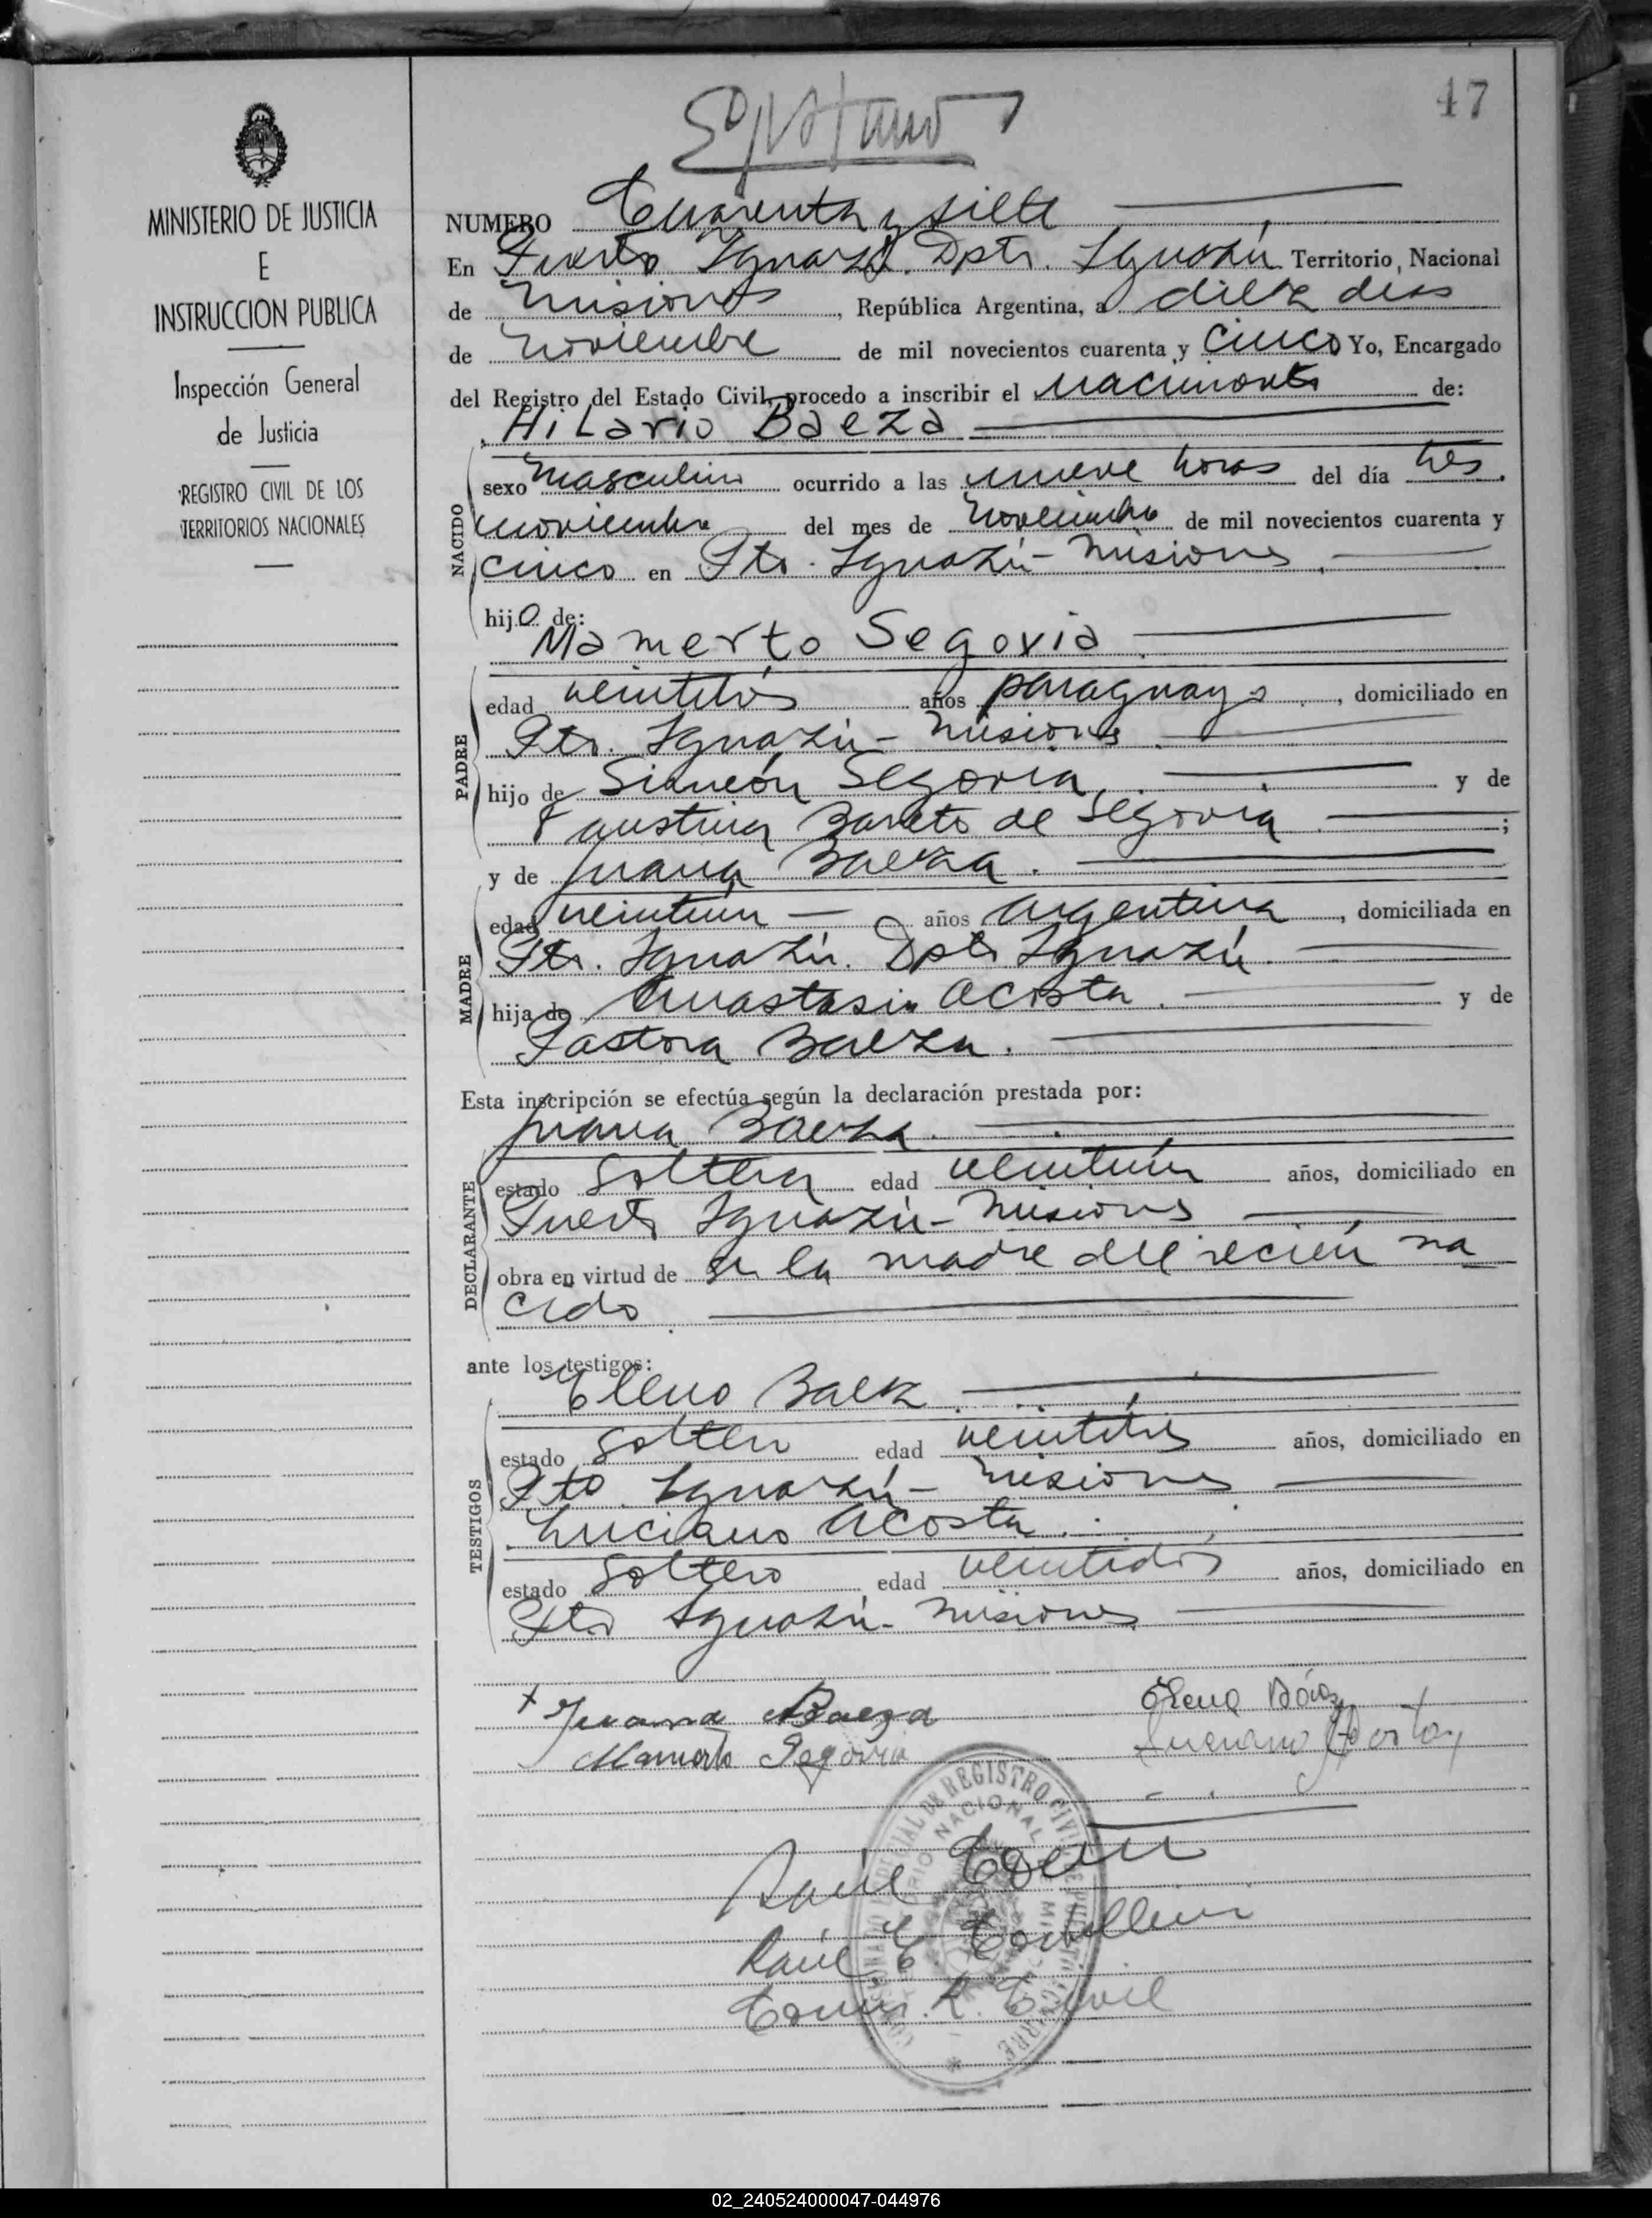 47
MINISTERIO DE JUSTICIA
E
INSTRUCCION PUBLICA
Inspección General
de Justicia
REGISTRO CIVIL DE LOS
TERRITORIOS NACIONALES
NUMERO Cuarenta y siete
En Puerto Iguazú. Dpto. Iguazú Territorio Nacional
de Misiones, República Argentina, a diez dias
de Noviembre de mil novecientos cuarenta y cinco Yo, Encargado
del Registro del Estado Civil, procedo a inscribir el nacimiento de:
Hilario Baeza
NACIDO
sexo masculino ocurrido a las nueve horas del día tres
noviembre del mes de Noviembre de mil novecientos cuarenta y
cinco en Pto. Iguazú - Misiones.
hijo de:
Mamerto Segovia
PADRE
edad años paraguayo, domiciliado en
Pto. Iguazú - Misiones
hijo de Simeón Segovia, y de
Faustina Barreto de Segovia;
y de Juana Baeza.
MADRE
edad veintiún años argentina, domiciliada en
Pto. Iguazú. Dpto Iguazú.
hija de Anastasio Acosta. y de
Pastora Baeza.
Esta inscripción se efectúa según la declaración prestada por:
Juana Baeza.
DECLARANTE
estado Soltera edad veintiún años, domiciliado en
Puerto Iguazú - Misiones
obra en virtud de ser la madre del recién na
cido.
ante los testigos:
Eleno Baez.
TESTIGOS
estado soltero edad veintitrés años, domiciliado en
Pto. Iguazú - Misiones
Luciano Acosta.
estado Soltero edad veintidós años, domiciliado en
Pto Iguazú - Misiones
+ Juana Baeza
Eleno Báez
Mamerto Segovia
Luciano Acosta
Raúl
Raúl E.
R. Civil
REGISTRO CIVIL
NACIONAL
02_240524000047-044976